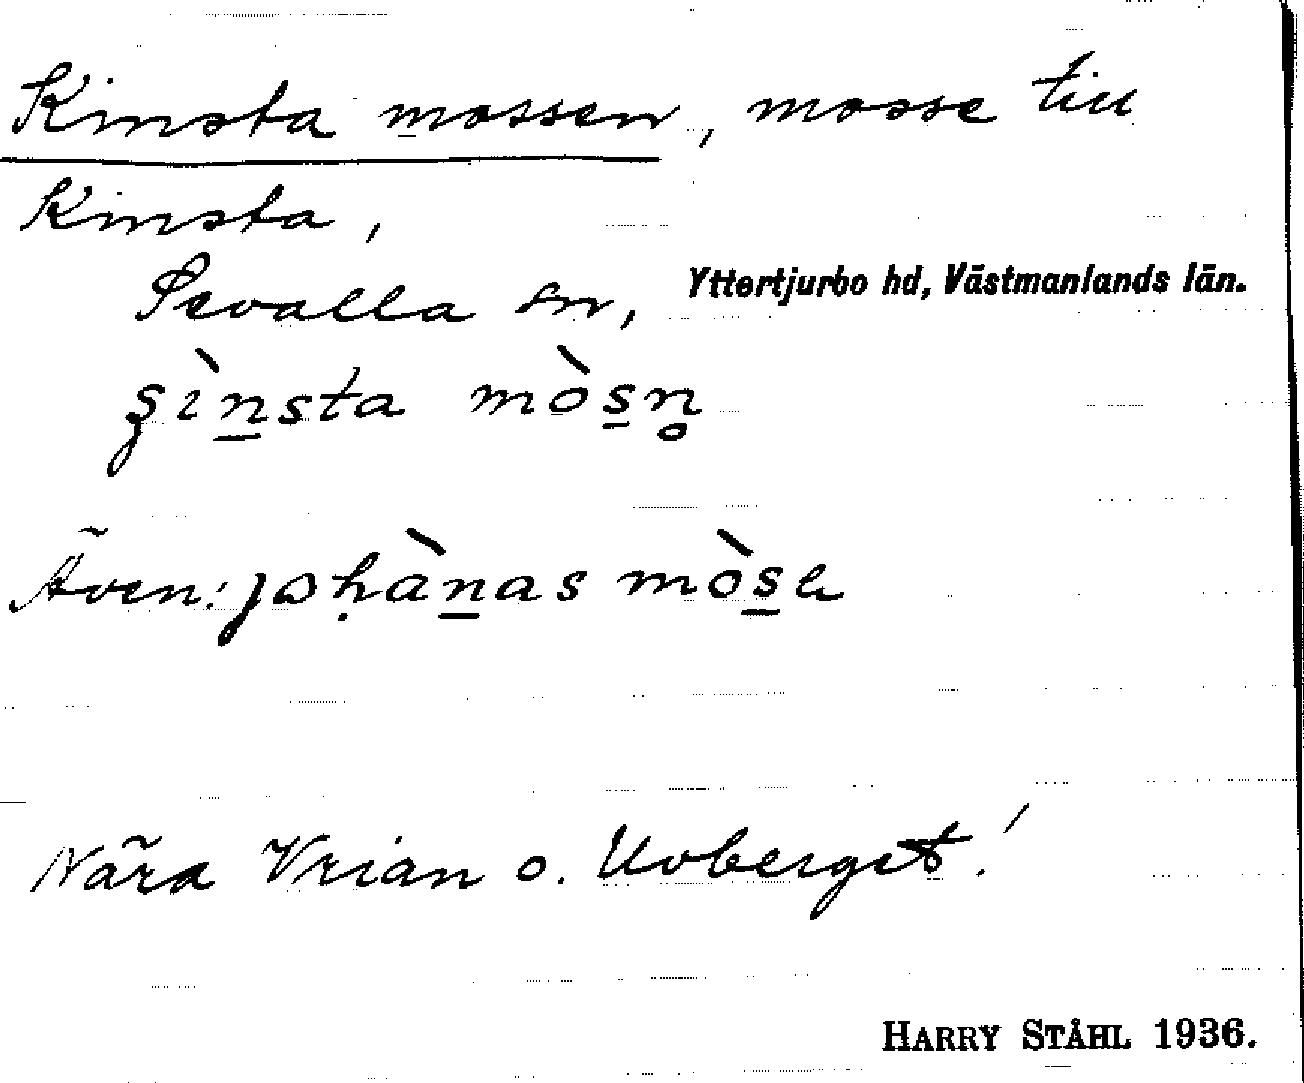 Kinsta mossen, mosse till
Kinsta,
Sevalla sn, Yttertjurbo hd, Västmanlands län.
ʂìn̲sta mòs̲n̥
Även: johàn̲as mòs̲a
Nära Vrian o. Uvberget!
HARRY STÅHL 1936.